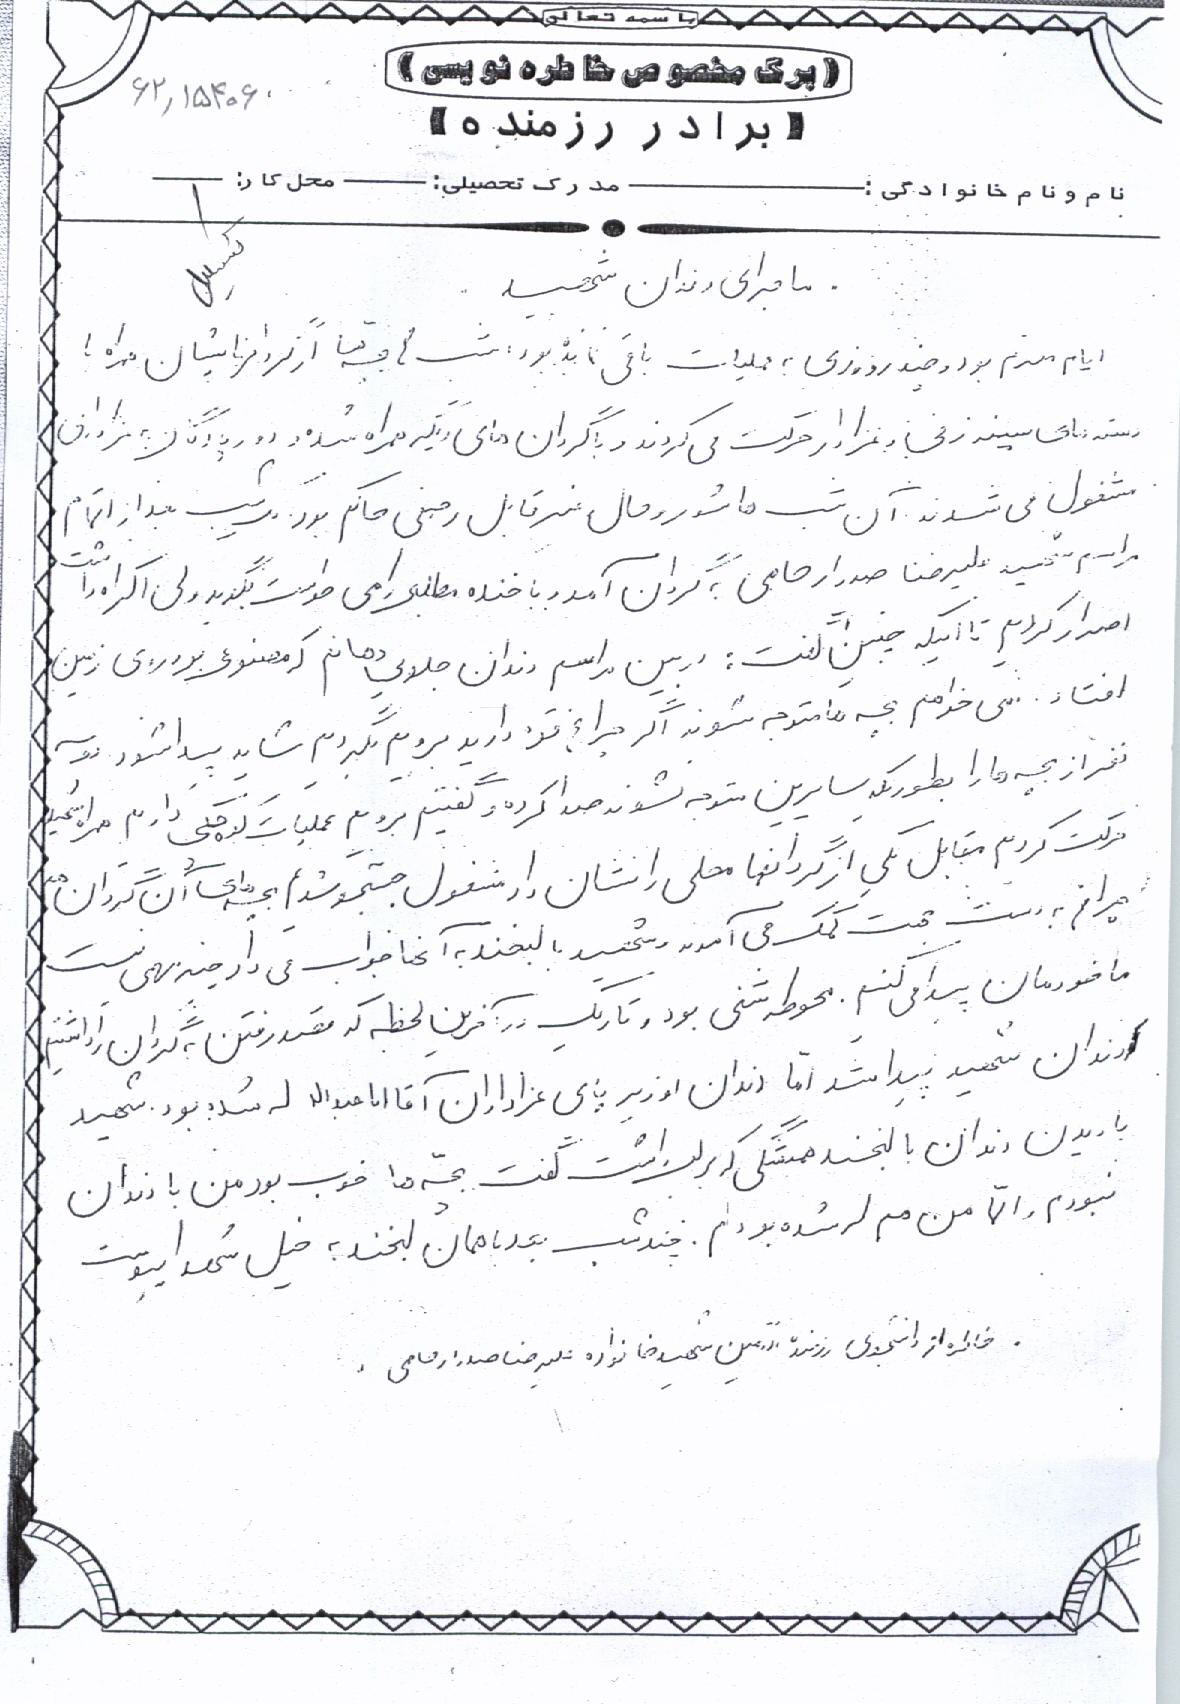 باسمه تعالی
(برگ مخصوص خاطره نویسی)
۶۲٫۱۵۴۰۶
برادر رزمنده
نام و نام خانوادگی: مدرک تحصیلی: محل کار:
ماجرای دندان شهید
ایام محرم بود و چند روزی به عملیات باقی نمانده بود. شب ها گردانها همراه با
دسته های سینه زنی و عزادار حرکت می کردند و با گردان های دیگر همراه شده و دور پادگان به عزاداری
مشغول می شدند. آن شب ها شور و حال غیر قابل وصفی حاکم بود. یک شب بعد از اتمام
مراسم شهید علیرضا صدرارحامی به گردان آمد و با خنده مطلبی را می خواست بگوید ولی اکراه داشت
اصرار کردیم تا اینکه چنین گفت: در بین مراسم دندان جلوی دهانم که مصنوعی بود روی زمین
افتاد. نمی خواهم بچه ها متوجه شوند اگر چراغ قوه دارید برویم بگردیم شاید پیدا شود. دو سه
نفر از بچه ها را بطوریکه سایرین متوجه نشوند صدا کرده و گفتیم برویم عملیات کوچکی داریم همراه شهید
حرکت کردیم مقابل یکی از گردانها محلی را نشان داد مشغول جستجو شدیم بچه های آن گردان هم
چراغ به دست جهت کمک می آمدند و شهید با لبخند به آنها جواب می داد چیز مهمی نیست
ما خودمان پیدا می کنیم. محوطه شنی بود و تاریک در آخرین لحظه که قصد رفتن به گردان را داشتیم
دندان شهید پیدا شد اما دندان او زیر پای عزاداران آقا اباعبداله له شده بود. شهید
با دیدن دندان با لبخند همیشگی که بر لب داشت گفت بچه ها خوب بود من با دندان
نبودم والّا من هم له شده بودم. چند شب بعد با همان لبخند به خیل شهدا پیوست
خاطره از دانشجوی رزمنده شهید خانواده علیرضا صدرارحامی.